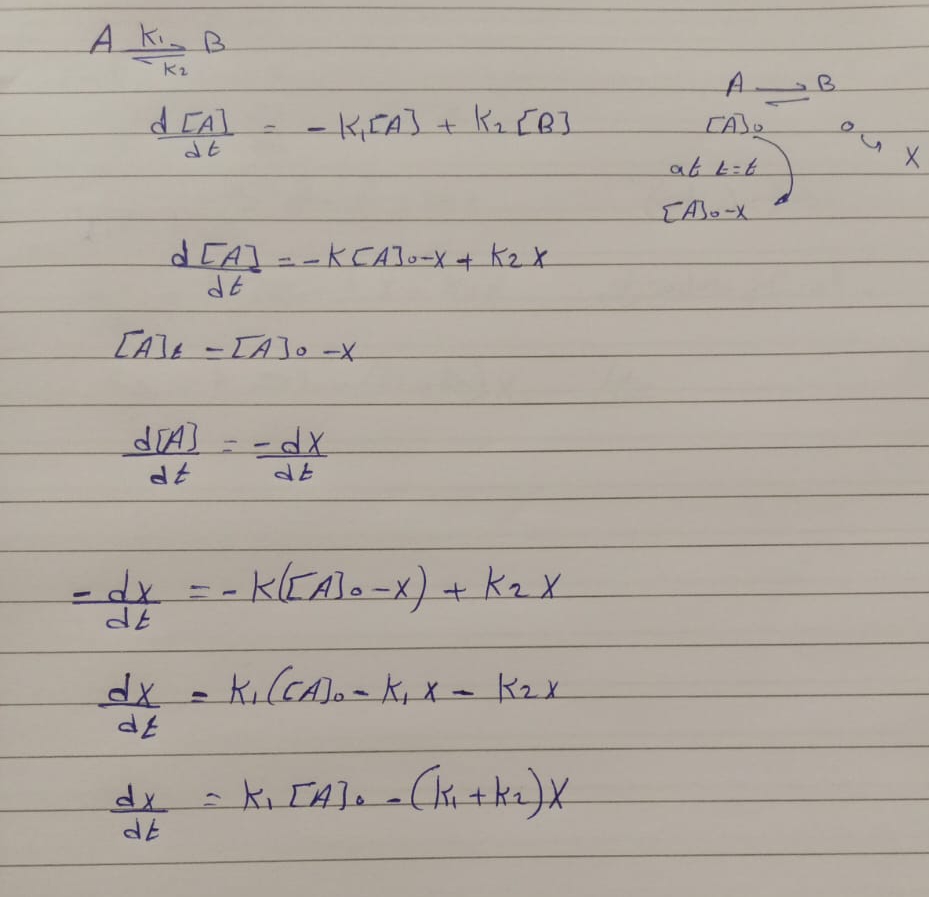 A ⇌ B
K₁
K₂
d[A]/dt = - K₁[A] + K₂[B]
A ⇌ B
[A]₀ 0 X
at t=t
[A]₀-X
d[A]/dt = - K[A]₀-X + K₂ X
[A]t = [A]₀ -X
d[A]/dt = -dX/dt
-dx/dt = - K([A]₀-X) + K₂ X
dx/dt = K₁([A]₀ - K₁ X - K₂X
dx/dt = K₁ [A]₀ - (K₁+K₂)X